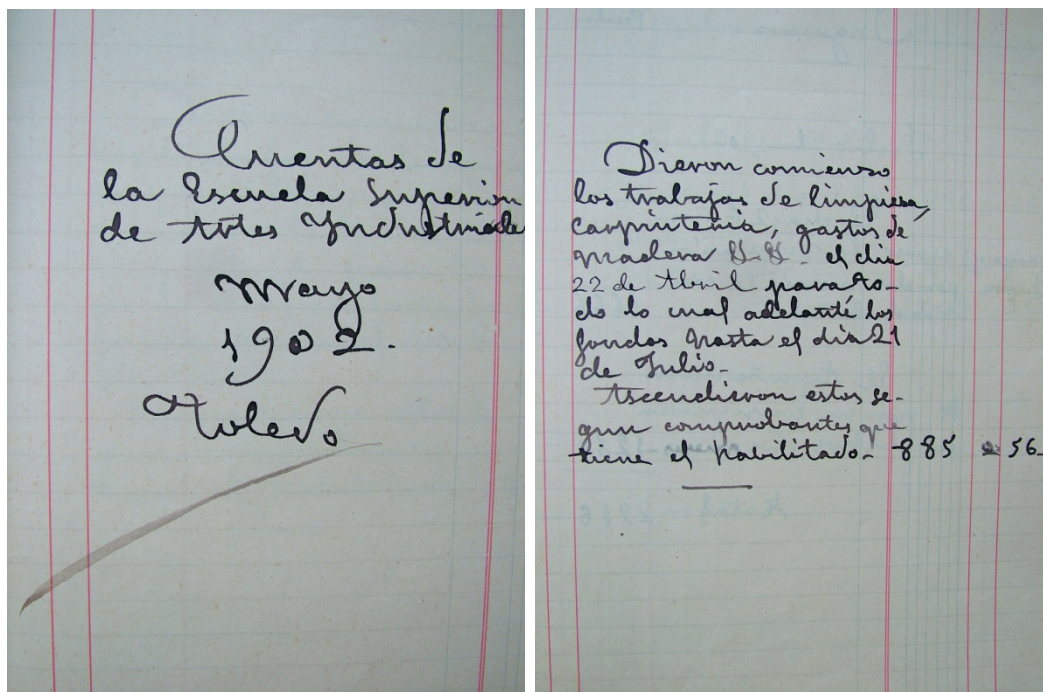 Cuentas de
la Escuela Superior
de Artes Industriale
Mayo
1902.
Toledo
Dieron comienso
los trabajos de limpiesa,
carpinteria, gastos de
madera &. &. el dia
22 de Abril para to-
do lo cual adelanté los
fondos hasta el dia 21
de Julio-
Ascendieron estos se-
gun comprobantes que
tiene el habilitado- 885 56-